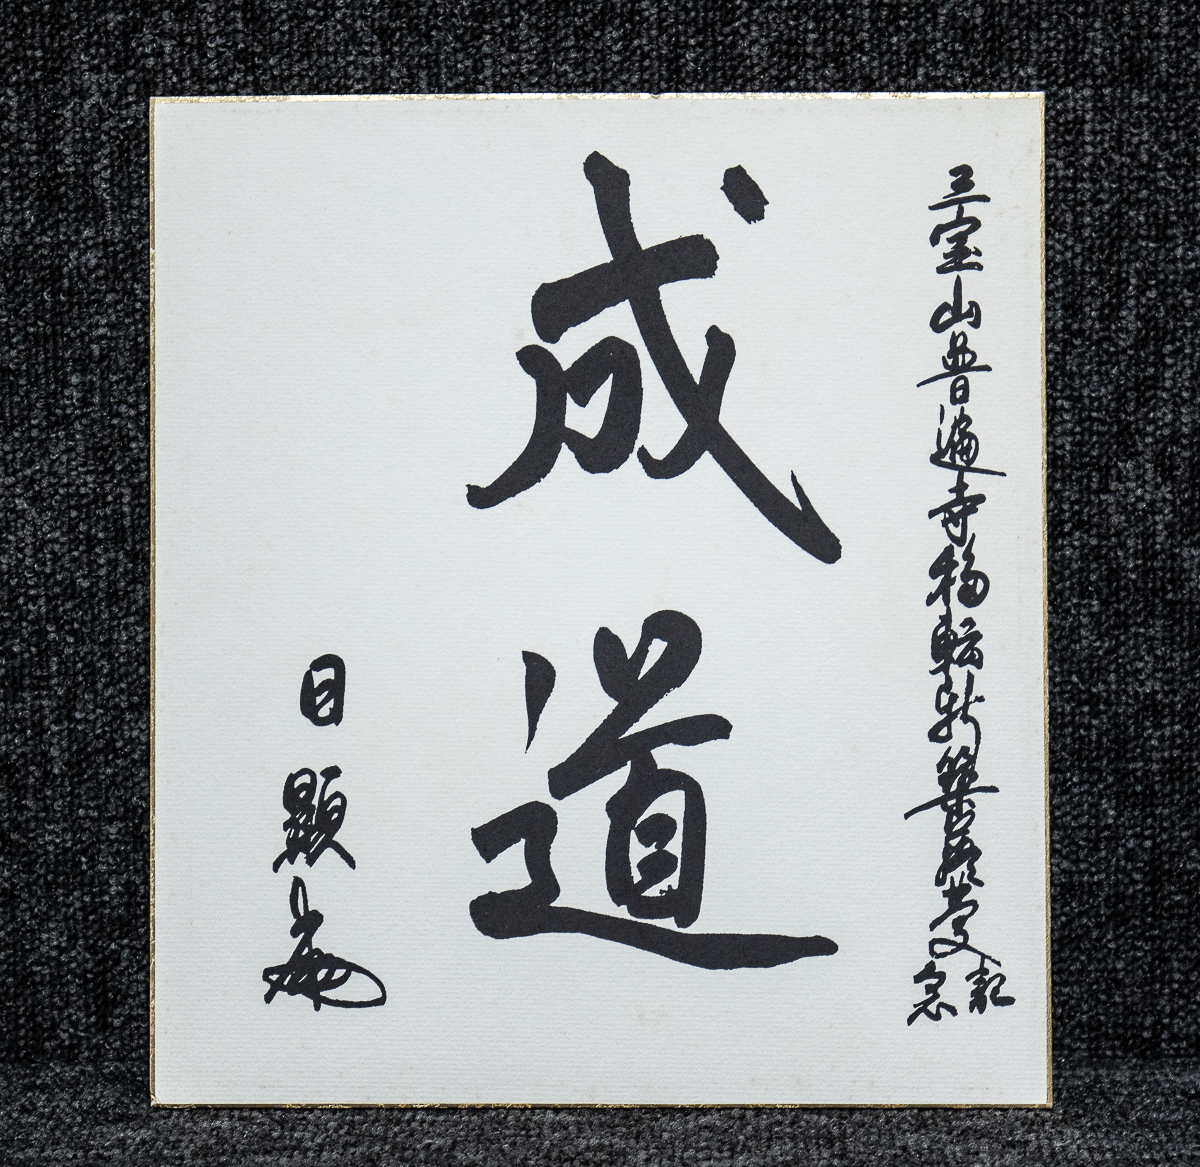 三宝山普遍寺移転新築落慶
記念
成道
日顕